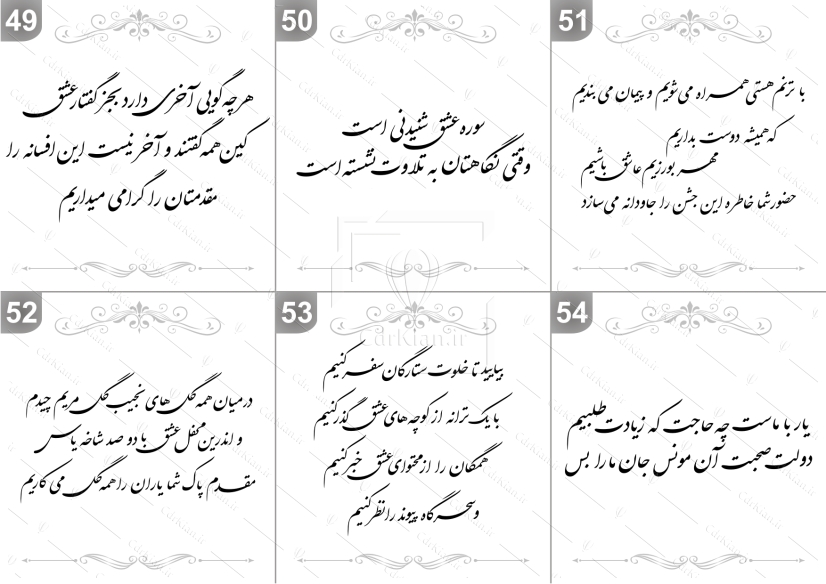 49
هر چه گویی آخری دارد بجز گفتار عشق
کین همه گفتند و آخر نیست این افسانه را
مقدمتان را گرامی میداریم
50
سوره عشق شنیدنی است
وقتی نگاهتان به تلاوت نشسته است
51
با ترنم هستی همراه می شویم و پیمان می بندیم
که همیشه دوست بداریم
مهر بورزیم عاشق باشیم
حضور شما خاطره این جشن را جاودانه می سازد
52
در میان همه گل های نجیب گل مریم چیدم
و اندرین محفل عشق با دو صد شاخه یاس
مقدم پاک شما یاران را همه گل می کاریم
53
بیایید تا خلوت ستارگان سفر کنیم
با یک ترانه از کوچه های عشق گذر کنیم
همگان را از محتوای عشق خبر کنیم
و سحرگاه پیوند را نظر کنیم
54
یار با ماست چه حاجت که زیادت طلبیم
دولت صحبت آن مونس جان ما را بس
CdrKian.ir